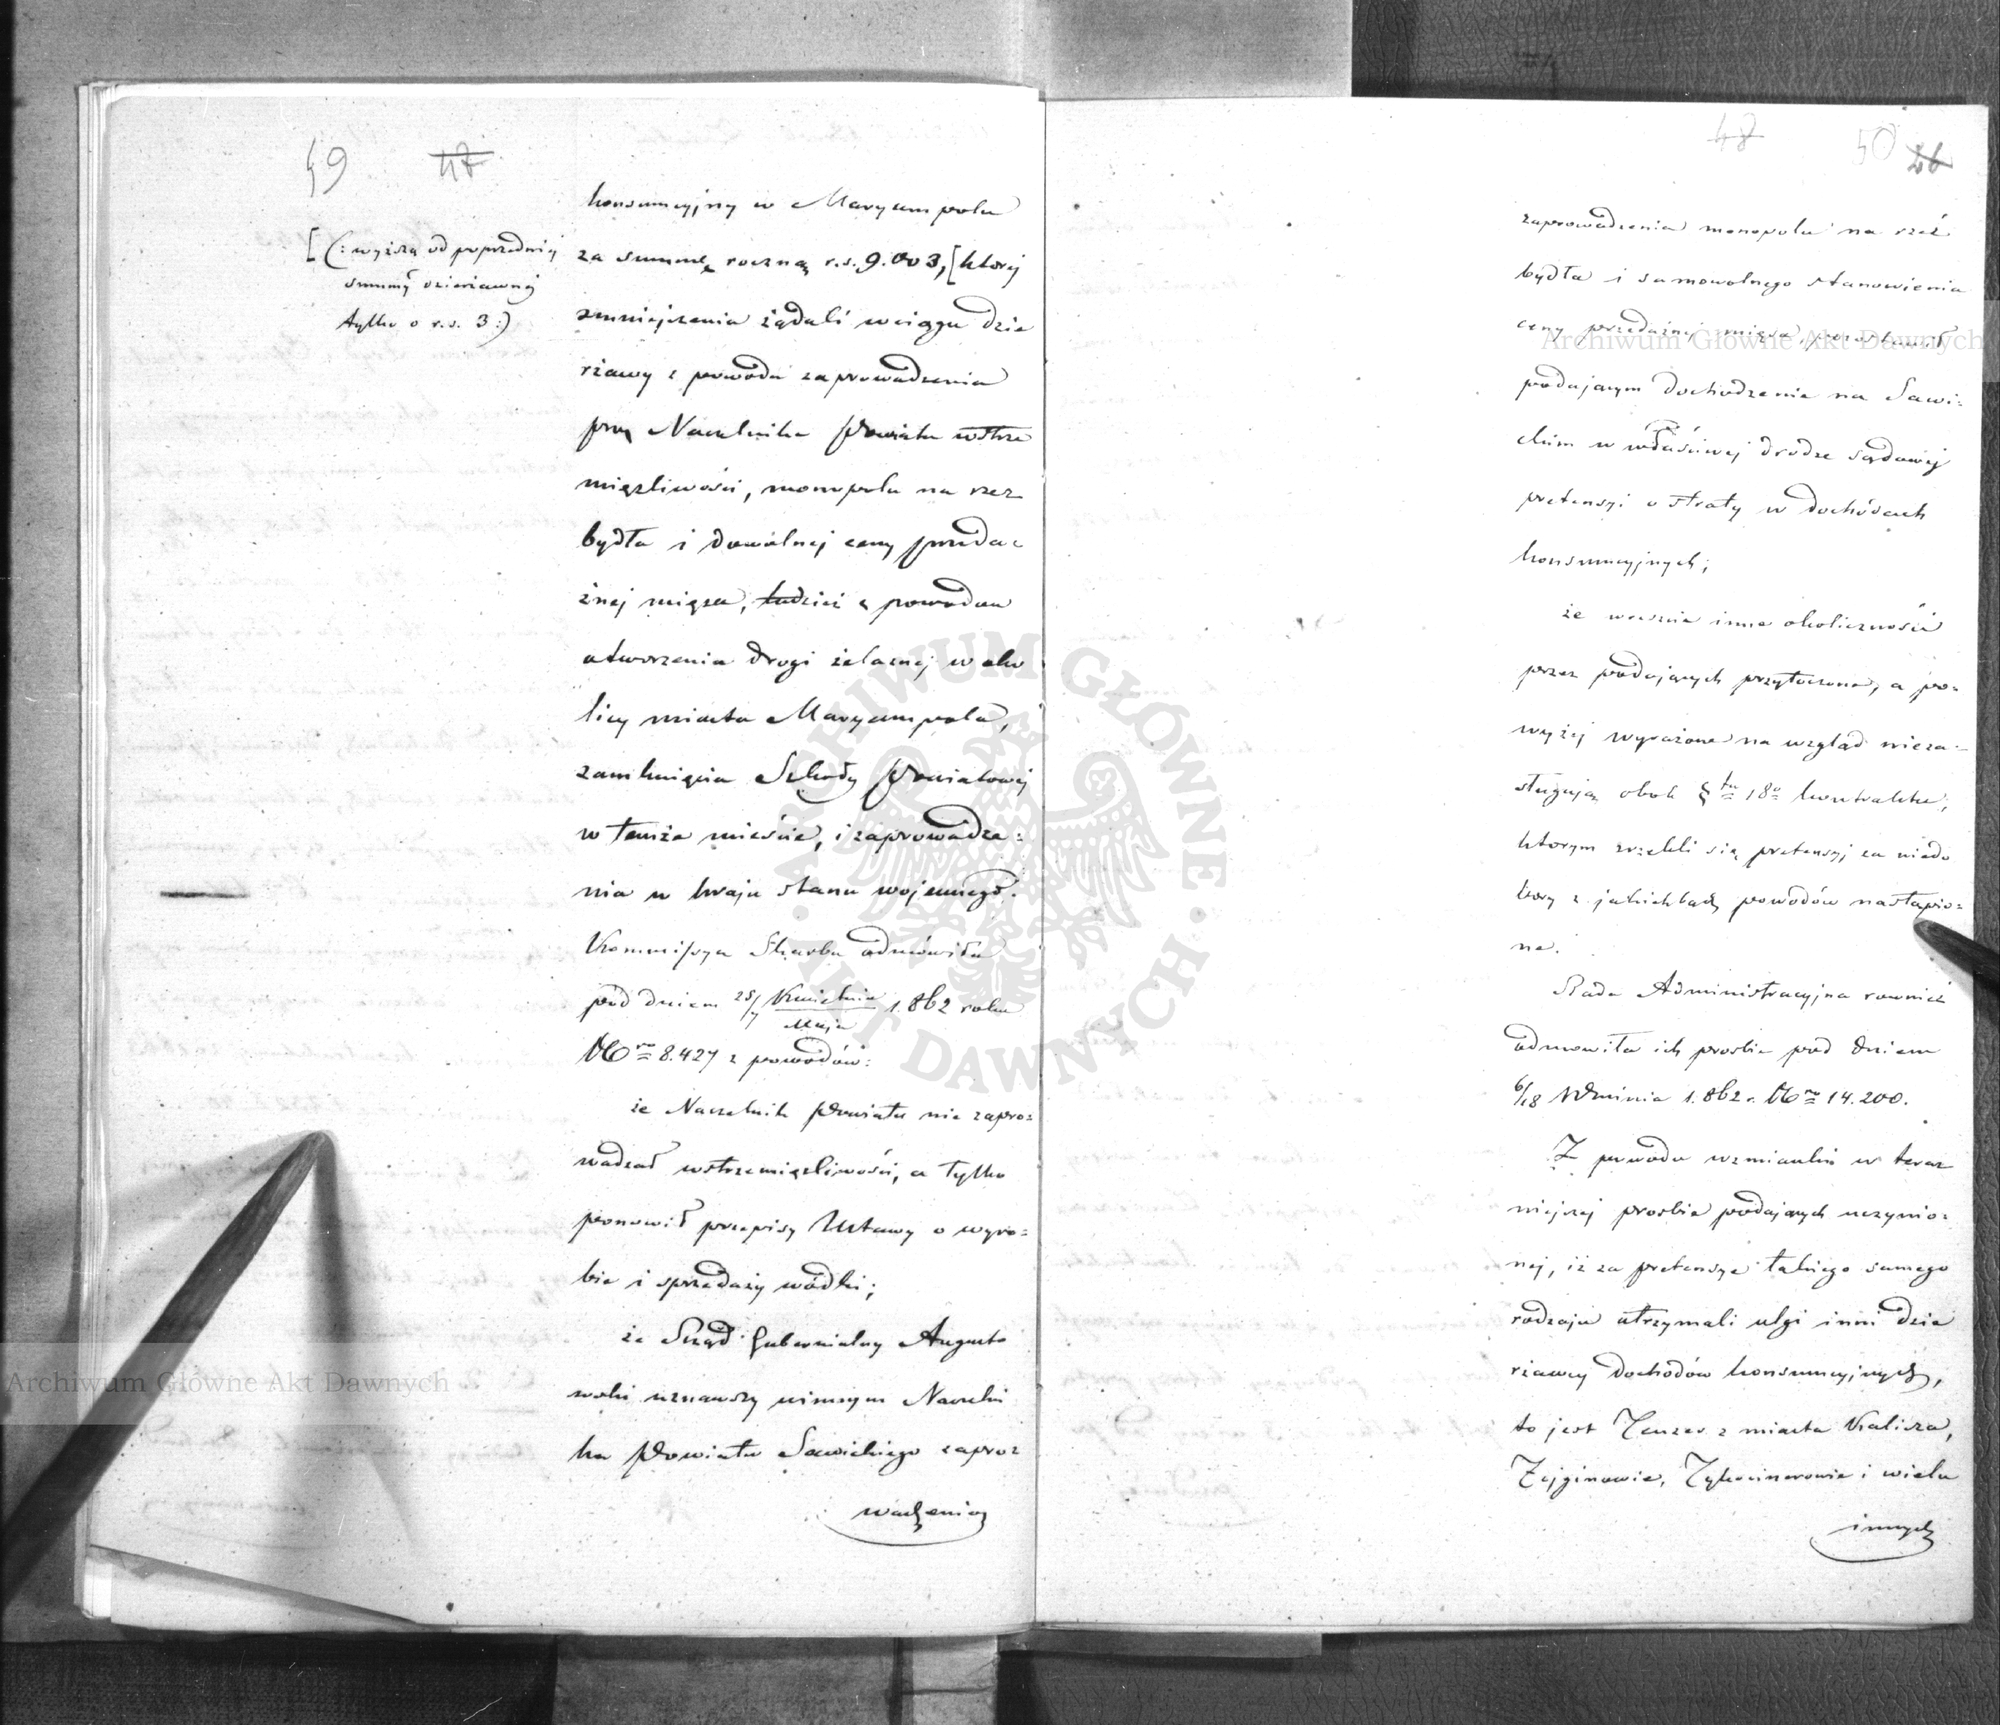 49 47
konsumcyjny w Maryampolu
[(: wyższą od poprzedniej
summy dzierżawnej
tylko o r.s. 3:)
za summę roczną r.s. 9.003, [której
zmniejszenia żądali wciągu dzie
rżawy z powodu zaprowadzenia
przez Naczelnika Powiatu wstrze
mięźliwości, monopolu na rzeź
bydła i dowolnej ceny przeda=
żnej mięsa, tudzież z powodu
utworzenia drogi żelaznej w oko
licy miasta Maryampola,
zamknięcia Szkoły Powiatowej
w temże mieście, i zaprowadze=
nia w kraju stanu wojennego.
Kommissya Skarbu odmówiła
pod dniem 25/7 Kwietnia/Maja 1.862 roku
No 8.427 z powodów:
że Naczelnik Powiatu nie zapro=
wadzał wstrzemięźliwości, a tylko
ponowił przepisy Ustawy o wyro=
bie i sprzedaży wódki;
że Rząd Gubernialny Augusto
wski uznawszy winnym Naczelni
ka Powiatu Sawickiego zapro=
wadzenia
48 50 26
zaprowadzenia monopolu na rzeź
bydła i samowolnego stanowienia
ceny przedażnej mięsa, pozostawił
podającym dochodzenie na Sawi=
ckim w właściwej drodze sądowej
pretensyi o straty w dochodach
konsumcyjnych;
że wreszcie inne okoliczności
przez podających przytoczone, a po=
wyżej wyrażone na wzgląd nieza=
sługują obok § tu 18o kontraktu,
którym zrzekli się pretensyj za niedo
bory z jakichbądź powodów nastąpio=
ne.
Rada Administracyjna rownież
odmowiła ich prosbie pod dniem
6/18 Września 1.862 r. No 14.200.
Z powodu wzmianki w teraz
niejszej prosbie podających uczynio=
nej, iż za pretensye takiego samego
rodzaju otrzymali ulgi inni dzie
rżawcy dochodów konsumcyjnych,
to jest Tenzer z miasta Kalisza,
Zejginowie, Tykocinerowie i wielu
innych
Archiwum Główne Akt Dawnych
Archiwum Główne Akt Dawnych
ARCHIWUM GŁÓWNE AKT DAWNYCH